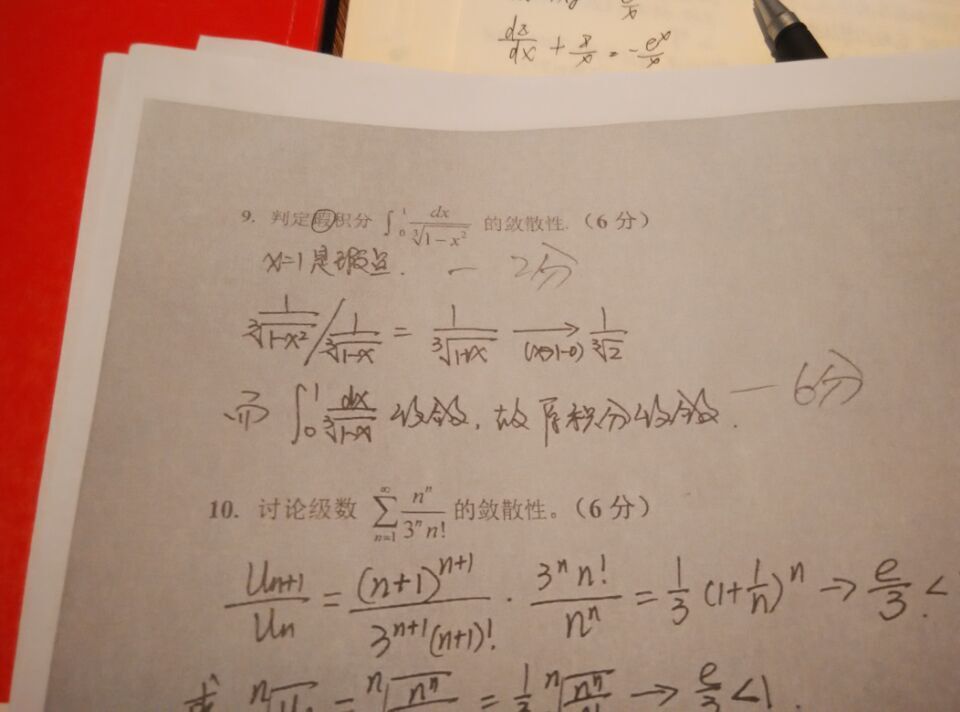 dz/dx + z/x = -e^x/x
9. 判定瑕积分 ∫_0^1 dx/∛(1-x²) 的敛散性.（6分）
x=1是瑕点. — 2分
1/∛(1-x²) / 1/∛(1-x) = 1/∛(1+x) → (x→1-0) 1/∛2
而 ∫_0^1 dx/∛(1-x) 收敛, 故原积分收敛. — 6分
10. 讨论级数 ∑_{n=1}^∞ n^n/(3^n n!) 的敛散性。（6分）
U_{n+1}/U_n = (n+1)^{n+1}/(3^{n+1}(n+1)!) · 3^n n!/n^n = 1/3 (1+1/n)^n → e/3 <
或 → e/3 <1.